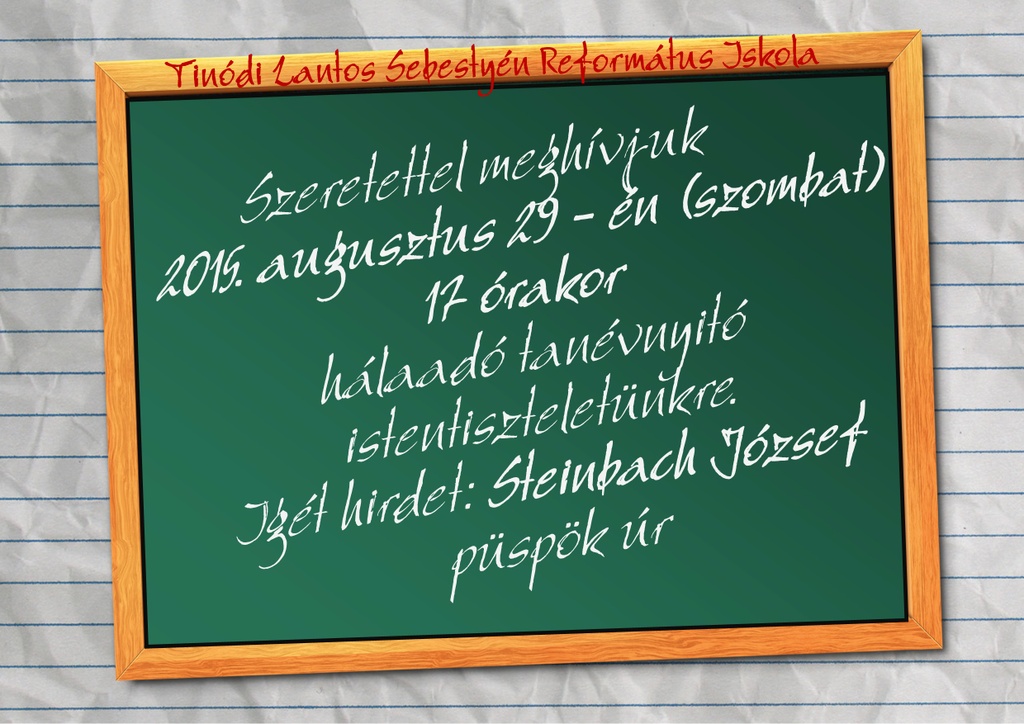 Tinódi Lantos Sebestyén Református Iskola
Szeretettel meghívjuk
2015. augusztus 29 - én (szombat)
17 órakor
hálaadó tanévnyitó
istentiszteletünkre.
Igét hirdet: Steinbach József
püspök úr